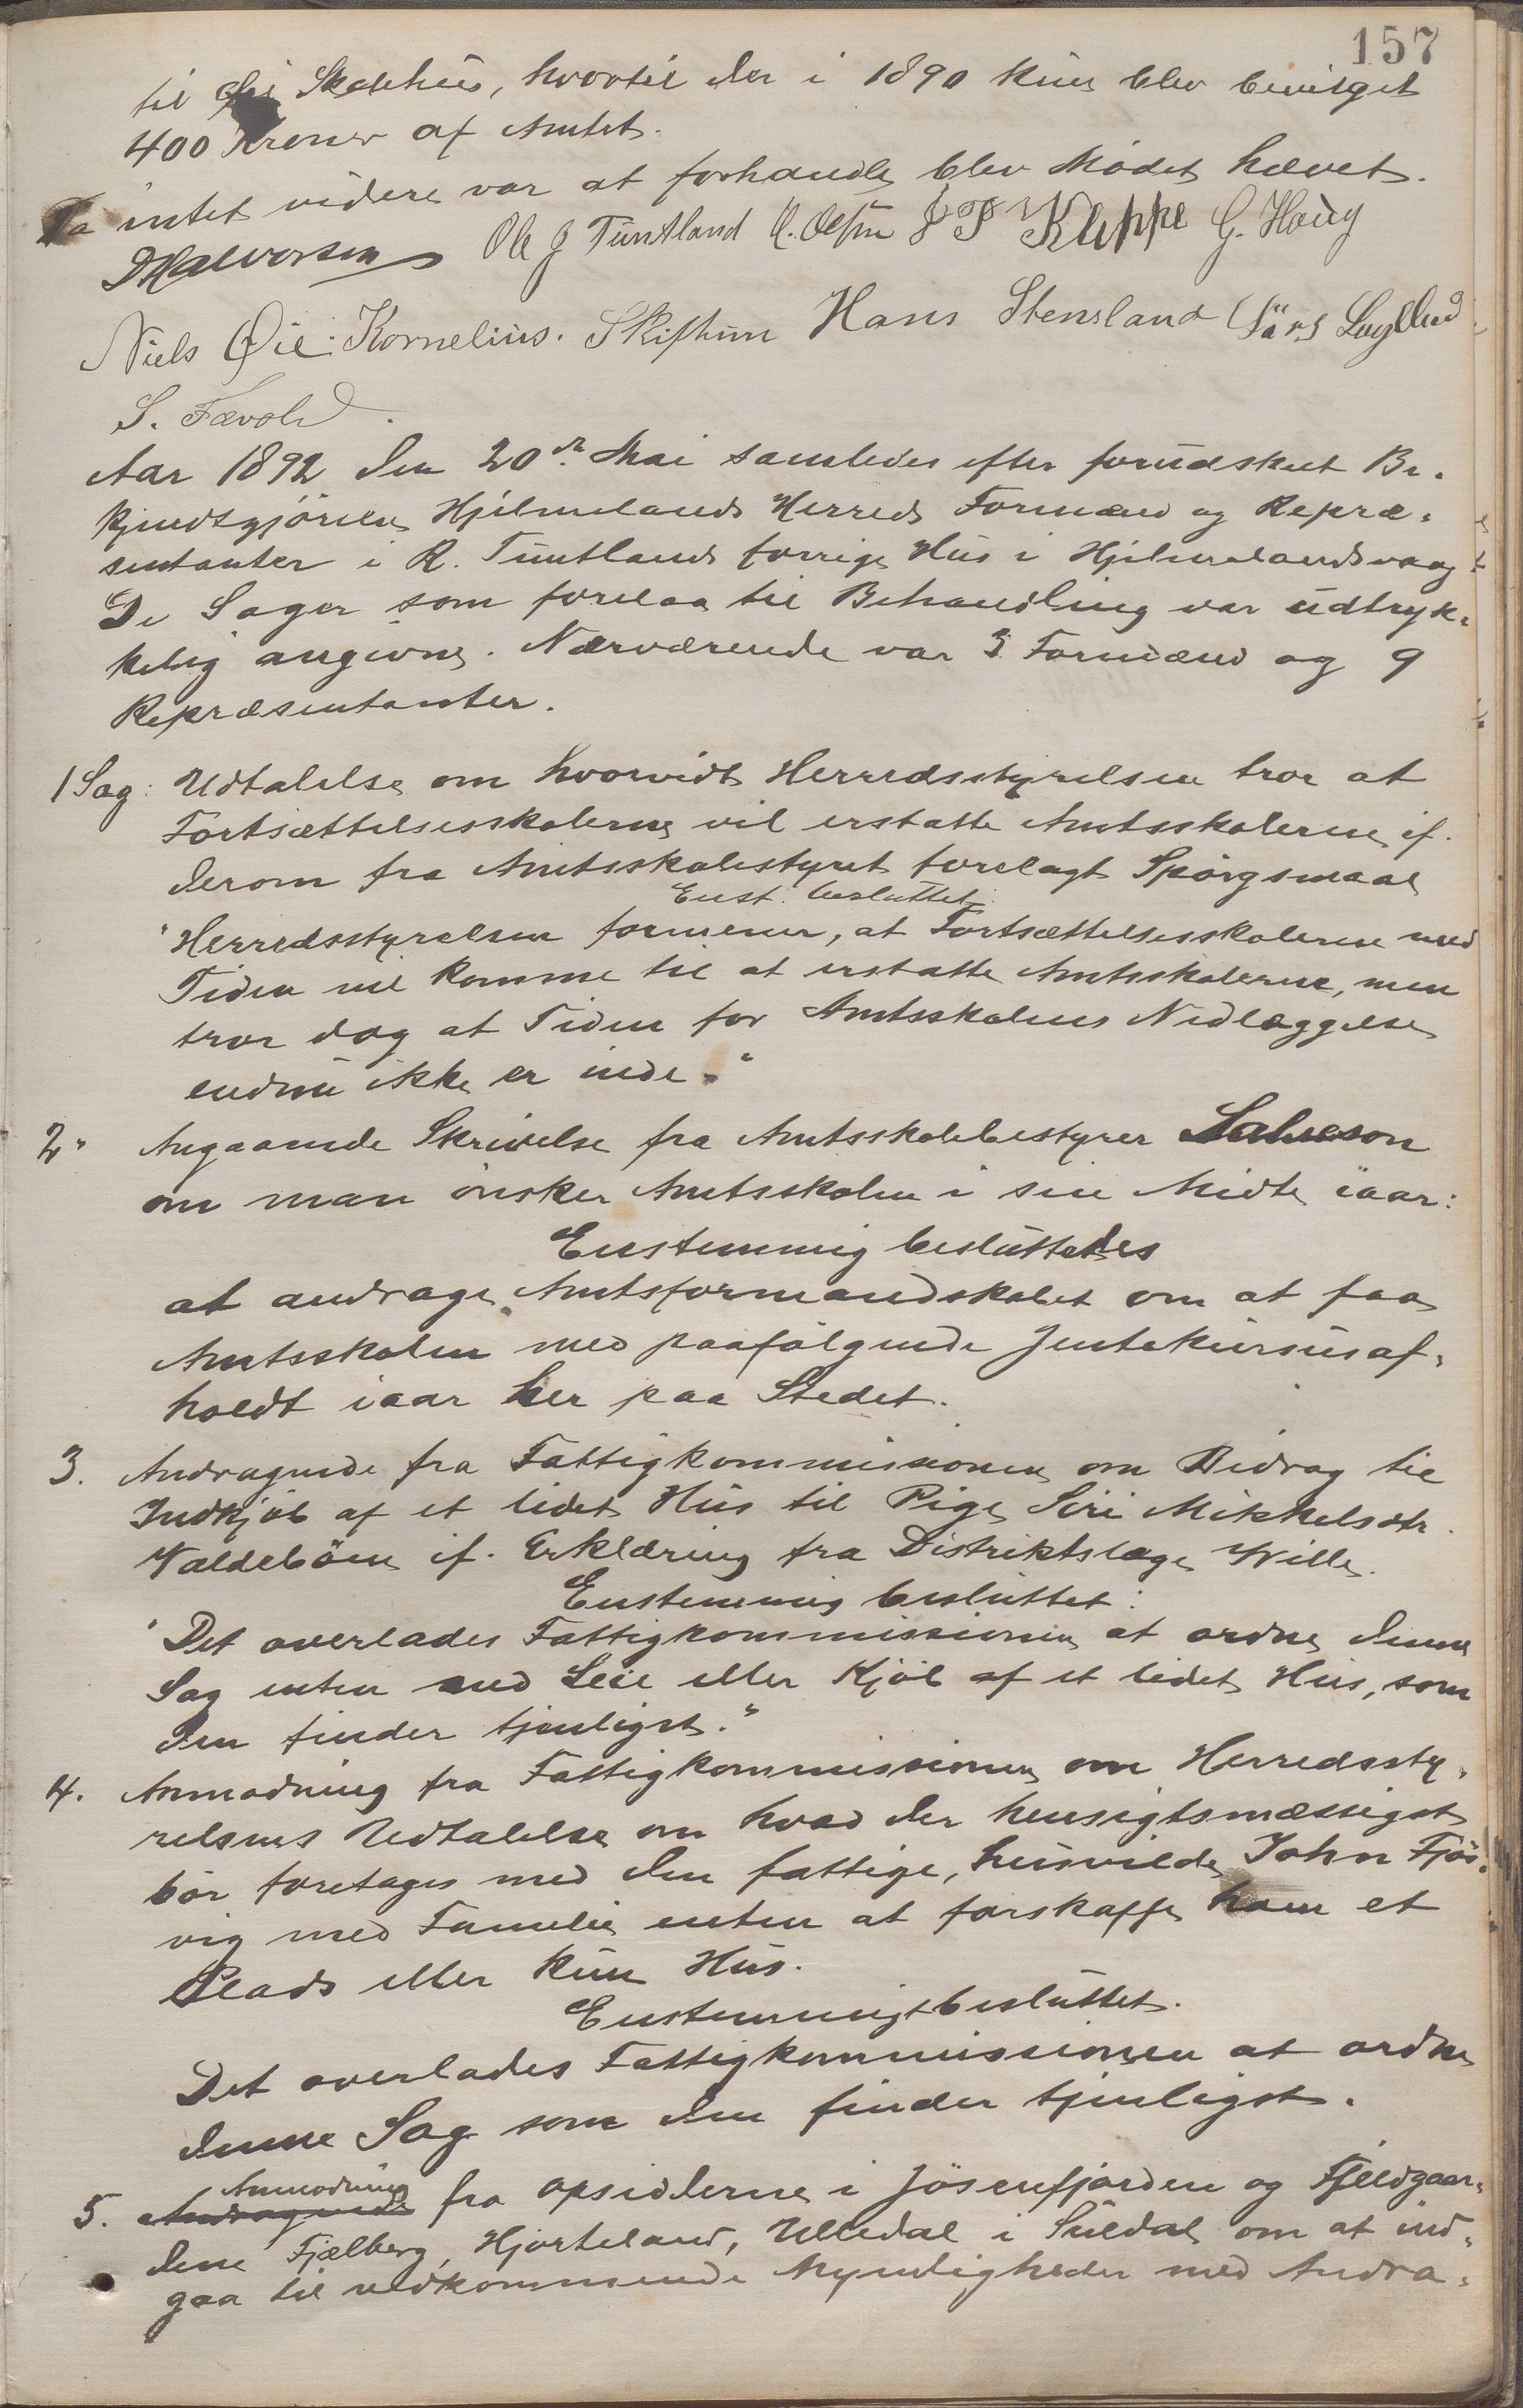 157
til Skolehus, hvortil der i 1890 kun blev bevilget
400 Kroner af Amtet.
Da intet videre var at forhandle blev Mödet hævet.
Halvorsen Ole J Tuntland J T Kleppe G. Houg
Niels Øie. Kornelius. Skiftun Hans Stensland Lars
S. Fævold.
Aar 1892 den 20de Mai samledes efter forudskeet Be-
kjendtgjörelse Hjelmelands Herreds Formænd og Repræ-
sentanter i R. Tuntlands forrige Hus i Hjelmelandsvaag
De Sager som forelaa til Behandling var udtryk-
kelig angivne. Nærværende var 3 Formænd og 9
Repræsentanter.
1 Sag: Udtalelse om hvorvidt Herredsstyrelsen tror at
Fortsættelsesskolerne vil erstatte Amtsskolerne if.
derom fra Amtsskolestyret forelagt Spörgsmaal
Enst. besluttet
"Herredsstyrelsen formener, at Fortsættelsesskolerne med
Tiden vil komme til at erstatte Amtsskolerne, men
tror dog at Tiden for Amtsskolens Nedlæggelse
endnu ikke er inde."
2" Angaaende Skrivelse fra Amtsskolebestyrer Salveson
om man önsker Amtsskolen i sin Midte iaar:
Enstemmig besluttedes
at andrage Amtsformandskabet om at faa
Amtsskolen med paafölgende Jentekursus af-
holdt iaar her paa Stedet.
3. Andragende fra Fattigkommissionen om Bidrag til
Indkjöb af et lidet Hus til Pige Siri Mikkelsdtr.
Valdeböen if. Erklæring fra Distriktslæge Wille.
Enstemmig besluttet:
"Det overlades Fattigkommissionen at ordne denne
Sag enten med Leie eller Kjöb af et lidet Hus, som
den finder tjenligst."
4. Anmodning fra Fattigkommissionen om Herredssty-
relsens Udtalelse om hvad der hensigtsmæssigst
bör foretages med den fattige, husvilde John Fjös-
vig med Familie enten at forskaffe ham et
Plads eller kun Hus.
Enstemmigt besluttet.
Det overlades Fattigkommissionen at ordne
denne Sag som den finder tjenligst.
Anmodning
5. Andragende fra Opsidderne i Jösenfjorden og Fjeldgaar-
dene Fjælberg, Hjorteland, Ulledal i Suldal om at ind-
gaa til vedkommende Myndigheder med Andra-